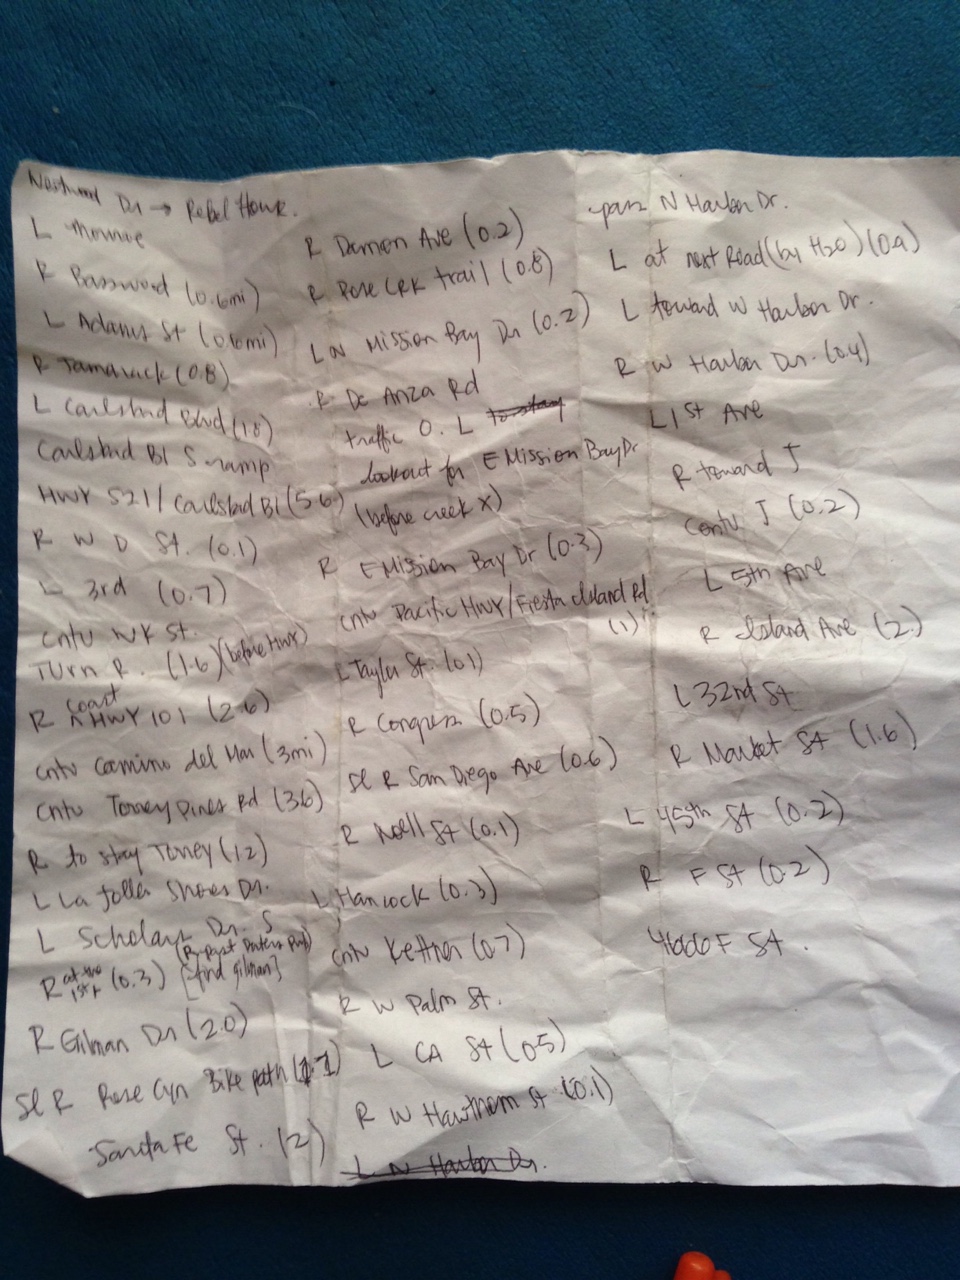 Westwood Dr → Rebel Hour.
L Monroe
R Bassword (0.6mi)
L Adams St (0.6mi)
R Tamarack (0.8)
L Carlsbad Blvd (1.8)
Carlsbad Bl S ramp
HWY S21/Carlsbad Bl (5.6)
R W D St. (0.1)
L 3rd (0.7)
cntu WK St.
TURN R. (1.6) (before HWY)
R coast HWY 101 (2.6)
cntu Camino del Mar (3mi)
cntu Torrey Pines Rd (3.6)
R to stay Torrey (1.2)
L La Jolla Shores Dr.
L Scholars Dr. S
R at the 1st (0.3) [find gilman]
R Gilman Dr (2.0)
Sl R Rose Cyn Bike path (1.1)
Santa Fe St. (2)
R Damon Ave (0.2)
R Rose CRK trail (0.8)
L N Mission Bay Dr (0.2)
R De Anza Rd
traffic O. L to stay
lookout for E Mission Bay Dr
(before creek X)
R E Mission Bay Dr (0.3)
cntu Pacific HWY/Fiesta Island Rd
(1)
R Taylor St. (0.1)
R Congress (0.5)
Sl R San Diego Ave (0.6)
R Noell St (0.1)
L Hancock (0.3)
cntu Kettner (0.7)
R W Palm St.
L CA St (0.5)
R W Hawthorn St (0.1)
L N Harbor Dr.
pass N Harbor Dr.
L at next Road (by H2O) (0.9)
L toward W Harbor Dr.
R W Harbor Dr. (0.4)
L 1st Ave
R toward J
contu J (0.2)
L 5th Ave
R Island Ave (2.)
L 32nd St
R Market St (1.6)
L 45th St (0.2)
R F St (0.2)
F St.